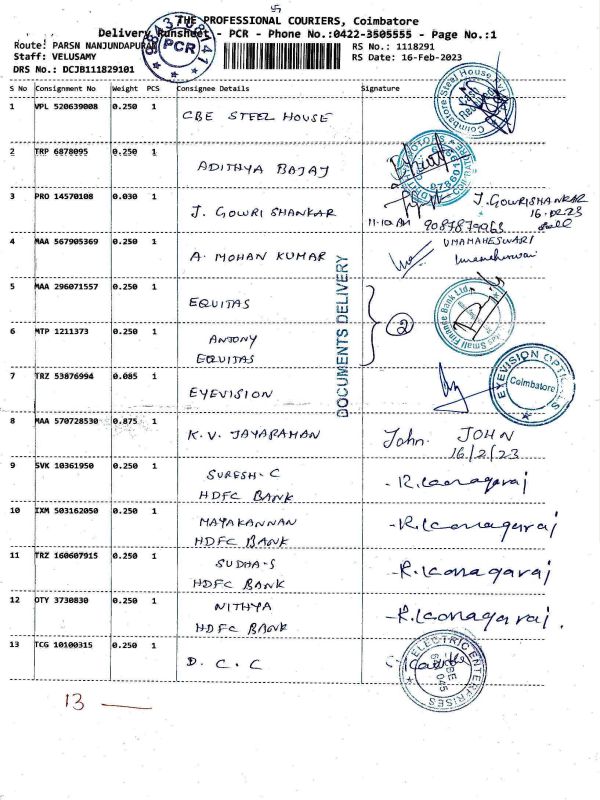 卐
THE PROFESSIONAL COURIERS, Coimbatore
Delivery Runsheet - PCR - Phone No.:0422-3505555 - Page No.:1
Route: PARSN NANJUNDAPURAM
RS No.: 1118291
Staff: VELUSAMY
RS Date: 16-Feb-2023
DRS No.: DCJB111829101
PCR
S No Consignment No Weight PCS Consignee Details Signature
1 VPL 520639008 0.250 1 CBE STEEL HOUSE
Coimbatore Steel House
2 TRP 6878095 0.250 1 ADITHYA BAJAJ
3 PRO 14570108 0.030 1 J. GOWRI SHANKAR J. GOWRISHANKAR
11.10 AM 16.02.23
4 MAA 567905369 0.250 1 A. MOHAN KUMAR UMAMAHESWARI
DOCUMENTS DELIVERY
5 MAA 296071557 0.250 1 EQUITAS
2
Small Finance Bank Ltd.
6 MTP 1211373 0.250 1 ANTONY
EQUITAS
7 TRZ 53876994 0.085 1 EYEVISION
EYEVISION OPTICALS
Coimbatore
8 MAA 570728530 0.875 1 K.V. JAYARAMAN John. JOHN
16/2/23
9 SVK 10361950 0.250 1 SURESH-C
HDFC BANK
- R. Kanagaraj
10 IXM 503162050 0.250 1 MAYAKANNAN
HDFC BANK
- R. Kanagaraj
11 TRZ 160607915 0.250 1 SUDHA-S
HDFC BANK
- R. Kanagaraj
12 OTY 3730830 0.250 1 NITHYA
HDFC BANK
- R. Kanagaraj.
13 TCG 10100315 0.250 1 D. C. C
ELECTRIC ENTERPRISES
13